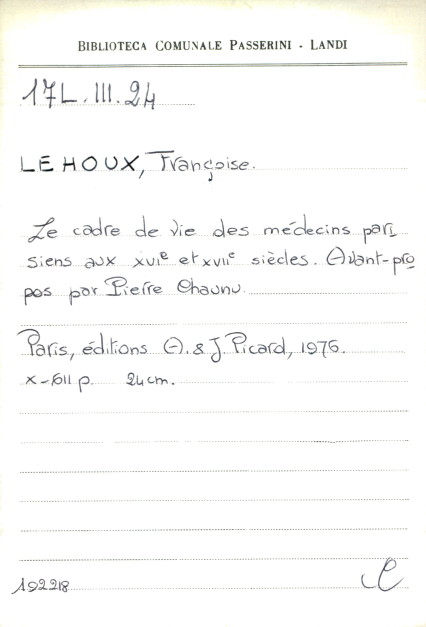 BIBLIOTECA COMUNALE PASSERINI - LANDI
17L.III.24
LEHOUX, Françoise.
Le cadre de vie des médecins pari
siens aux XVIe et XVIIe siècles. Avant-pro
pos par Pierre Chaunu.
Paris, éditions A. & J. Picard, 1976.
X-611 p. 24 cm.
192218